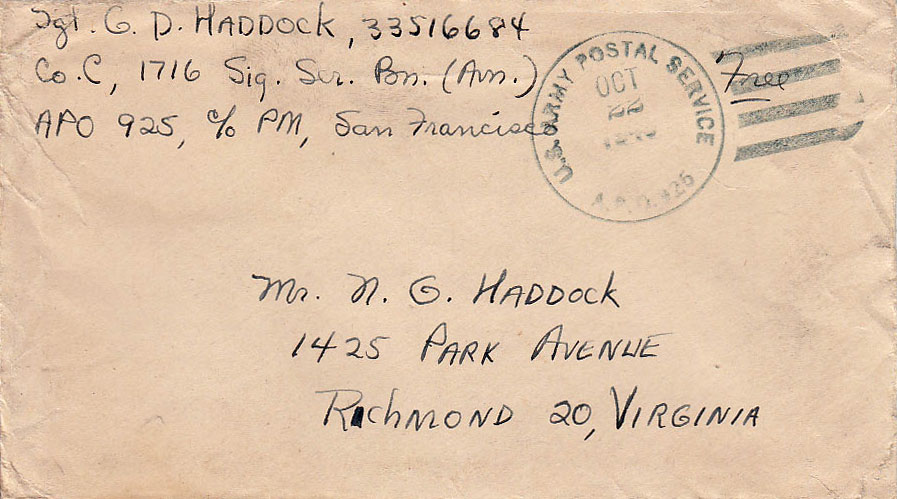 Sgt. G. D. HADDOCK, 33516684
Co. C, 1716 Sig. Ser. Bn. (Avn.)
APO 925, c/o PM, San Francisco
U.S. ARMY POSTAL SERVICE
OCT
22
A.P.O. 925
Free
Mr. N. G. HADDOCK
1425 PARK AVENUE
RICHMOND 20, VIRGINIA